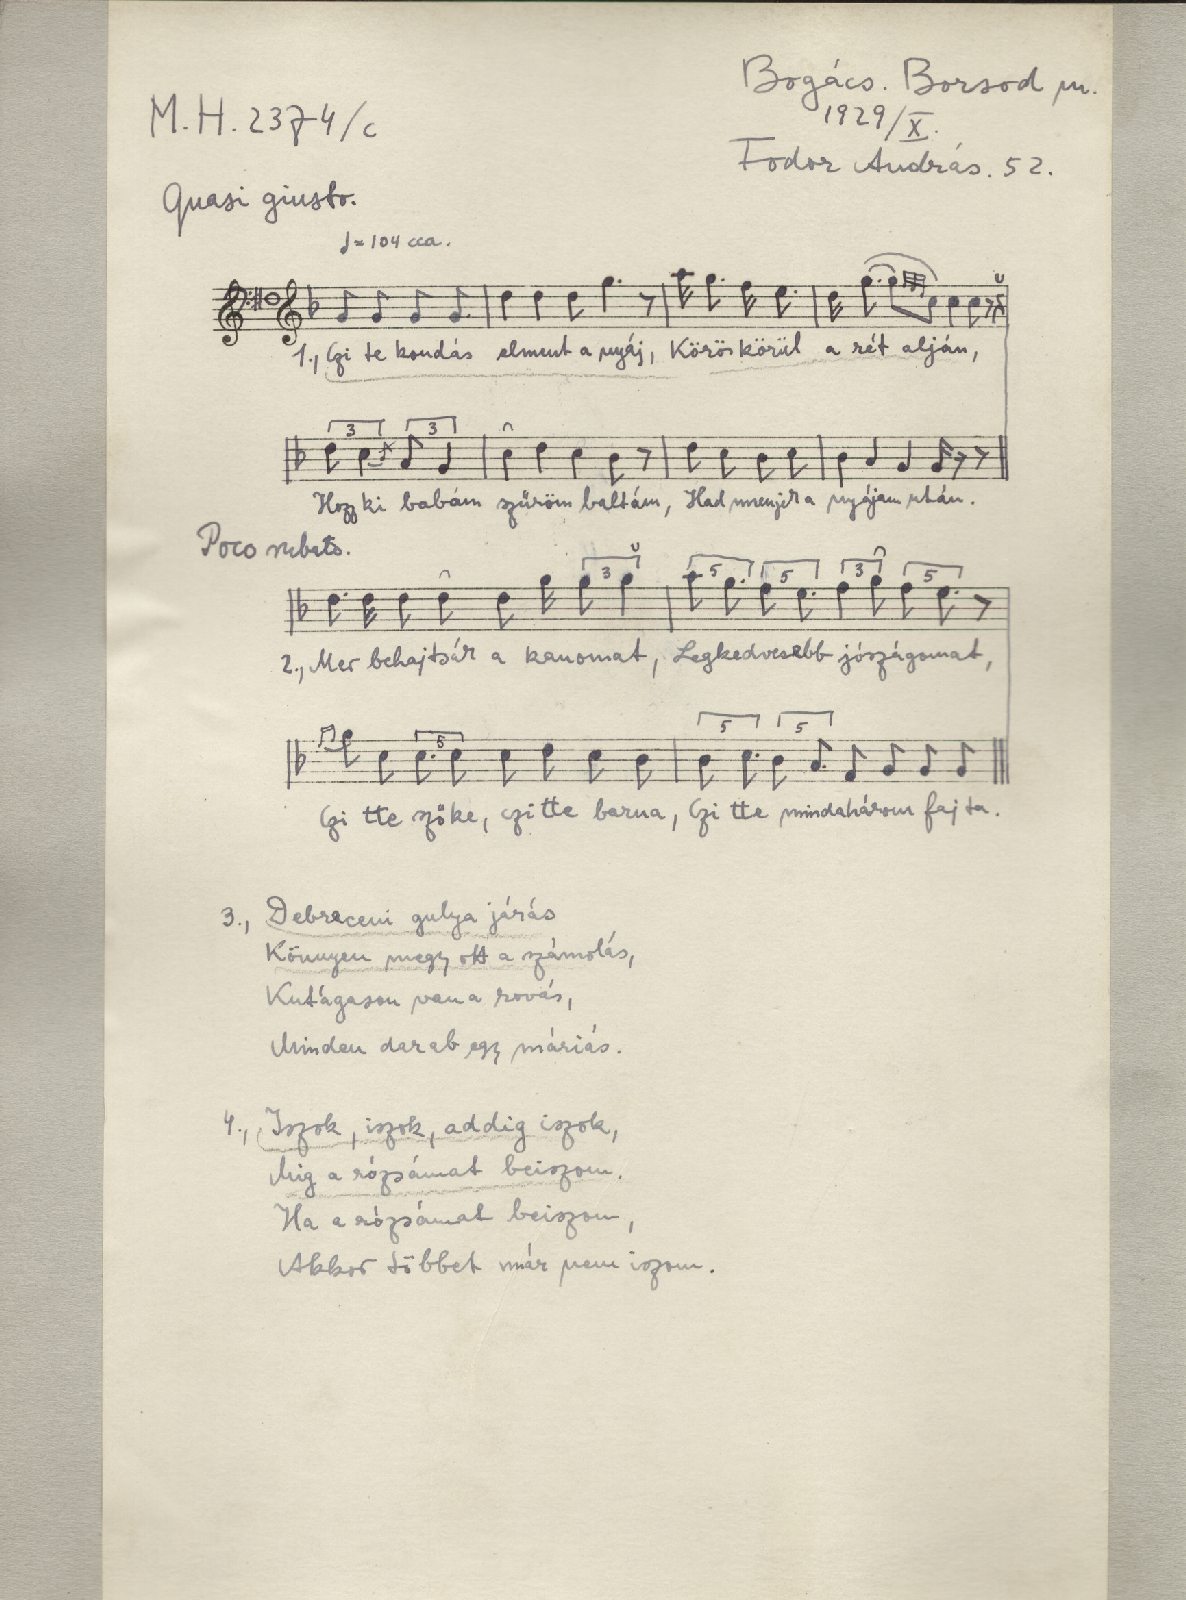 Bogács. Borsod m.
M.H. 2374/c
1929/X.
Fodor András. 52.
Quasi giusto.
♩= 104 cca.
1., Czi te kondás elment a nyáj, Köröskörül a rét alján,
3 3
Hozz ki babám szűröm baltám, Had menjek a nyájam után.
Poco rubato.
3 5 5 3 5
2., Mer behajtsár a kanomat, Legkedvesebb jószágomat,
5 5 5
Czi tte szőke, czi tte barna, Czi tte mindahárom fajta.
3., Debreceni gulya járás
Könnyen megy ott a számolás,
Kutágason van a rovás,
Minden darab egy máriás.
4., Iszok, iszok, addig iszok,
Mig a rózsámat beiszom.
Ha a rózsámat beiszom,
Akkor többet már nem iszom.